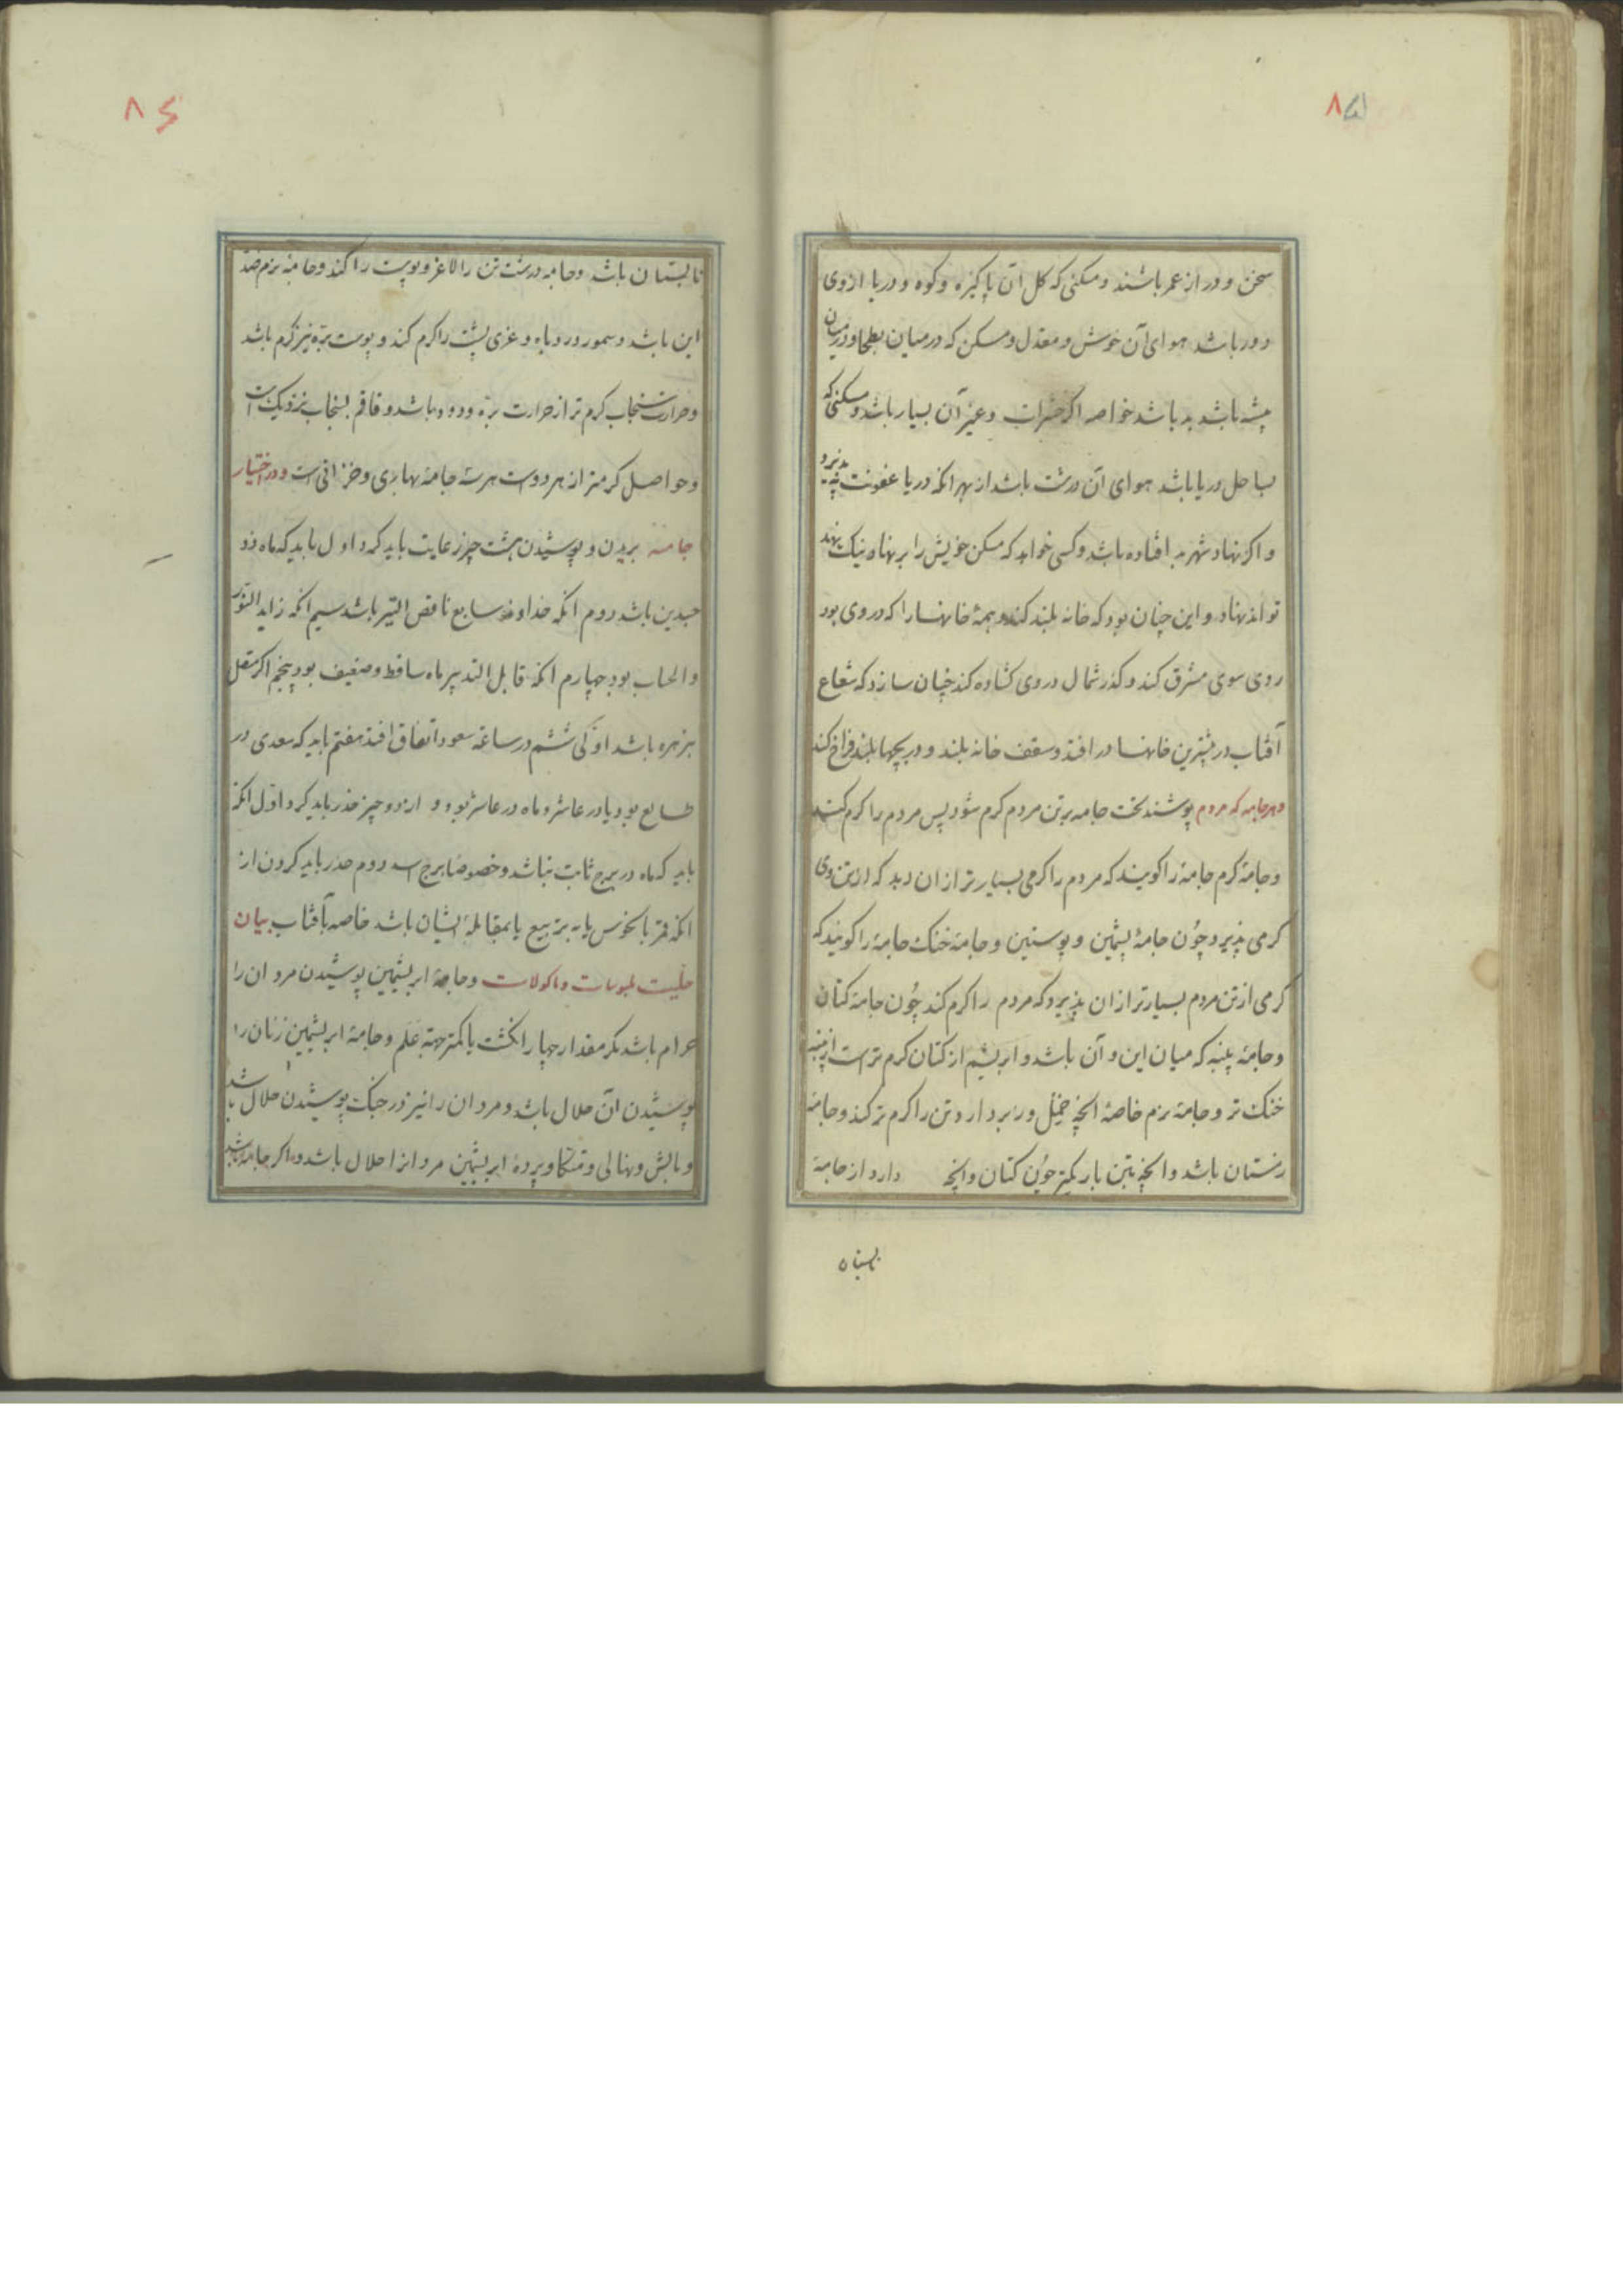 سخن و دراز عمر باشند و مسکنی که کل آن پاکیزه و کوه و دریا از وی
دور باشد هوای آن خوش و معتدل و مسکن که در میان بطحا و درمیان
بیشه باشد بد باشد خواصه اکر حشرات وغیر آن بسیار باشد و مسکنی که
بساحل دریا باشد هوای آن درشت باشد از بهر انکه دریا عفونت نپذیرد
و اکر نهاد شهر بد افتاده باشد وکسی خواهد که مسکن خویش را بر نهاد نیک نهد
تواند نهاد و این چنان بود که خانه بلند کند و همهٔ خانهسا را که در وی بود
روی سوی مشرق کند و کذر شمال در وی کشاده کند چنان سازد که شعاع
آفتاب در بیشترین خانهسا در افتد و سقف خانه بلند و دریچها بلند فراخ کند
و هر جامه که مردم پوشند نخست جامه بر تن مردم کرم شود پس مردم را کرم کند
و جامهٔ کرم جامهٔ را کویند که مردم را کرمی بسیارتر از ان دهد که از تن وی
کرمی پذیرد چون جامهٔ پشمین و پوستین و جامهٔ خنک جامهٔ را کویند که
کرمی از تن مردم بسیارتر از ان پذیرد که مردم را کرم کند چون جامهٔ کتان
و جامهٔ پنبه که میان این و آن باشد و ابریشم از کتان کرم تر است از پنبه
خنک تر و جامهٔ نرم خاصهٔ انچه خمل و زبر دارد تن را کرم تر کند و جامهٔ
زمستان باشد و انچه بتن باریکتر چون کتان و انچه دارد از جامهٔ
تابستان
تابستان باشد و جامه درشت تن را لاغر و پوست را کند و جامهٔ نرم ضد
این باشد و سمور و روباه و غری پشت را کرم کند و پوست بره نیز کرم باشد
و حرارت سنجاب کرم تر از حرارت بره و دوده باشد و قاقم بسنجاب نزدیک است
و حواصل کرمتر از هر دو است هر سه جامهٔ بهاری و خزانی است و در اختیار
جامه بریدن و پوشیدن هشت چیز رعایت باید کرد اول باید که ماه ذو
جسدین باشد دوم انکه خداوند سابع ناقص السیر باشد سیم انکه زاید النور
و الحساب بود چهارم انکه قابل التدبیر ماه ساقط و ضعیف بود پنجم اکر متصل
بزهره باشد اولی ششم در ساعة سعود اتفاق افتد هفتم باید که سعدی در
طالع بود یا در عاشر و ماه در عاشر بود و از دو چیز حذر باید کرد اول انکه
باید که ماه در برج ثابت نباشد و خصوصا برج اسد دوم حذر باید کردن از
انکه قمر با نحوس یا به تربیع یا بمقابلهٔ ایشان باشد خاصه بآفتاب بیان
حلیت ملبوسات و ماکولات و جامهٔ ابریشمین پوشیدن مردان را
حرام باشد مکر مقدار چهار انکشت یا کمتر جهة عَلَم و جامهٔ ابریشمین زنان را
پوشیدن آن حلال باشد و مردان را نیز در جنک پوشیدن حلال باشد
و بالش و نهالی و متکا و پردهٔ ابریشمین مردانرا حلال باشد و اکر جامه باشد